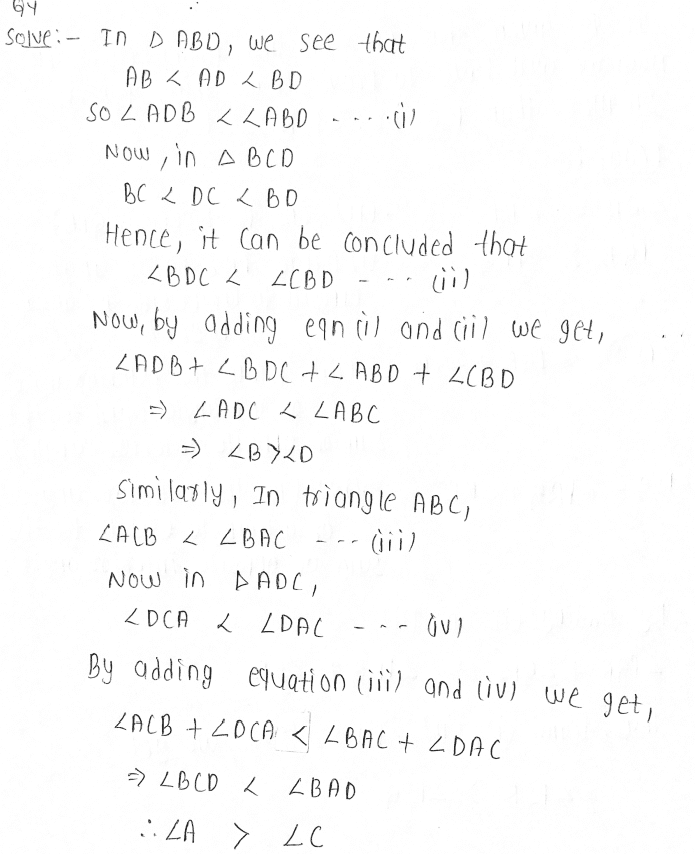 Q4
Solve:- In △ ABD, we see that
AB < AD < BD
So ∠ADB < ∠ABD ----- (i)
Now, in △ BCD
BC < DC < BD
Hence, it can be concluded that
∠BDC < ∠CBD --- (ii)
Now, by adding eqn (i) and (ii) we get,
∠ADB + ∠BDC + ∠ABD + ∠CBD
⇒ ∠ADC < ∠ABC
⇒ ∠B > ∠D
Similarly, In triangle ABC,
∠ACB < ∠BAC --- (iii)
Now in △ADC,
∠DCA < ∠DAC --- (iv)
By adding equation (iii) and (iv) we get,
∠ACB + ∠DCA < ∠BAC + ∠DAC
⇒ ∠BCD < ∠BAD
∴ ∠A > ∠C